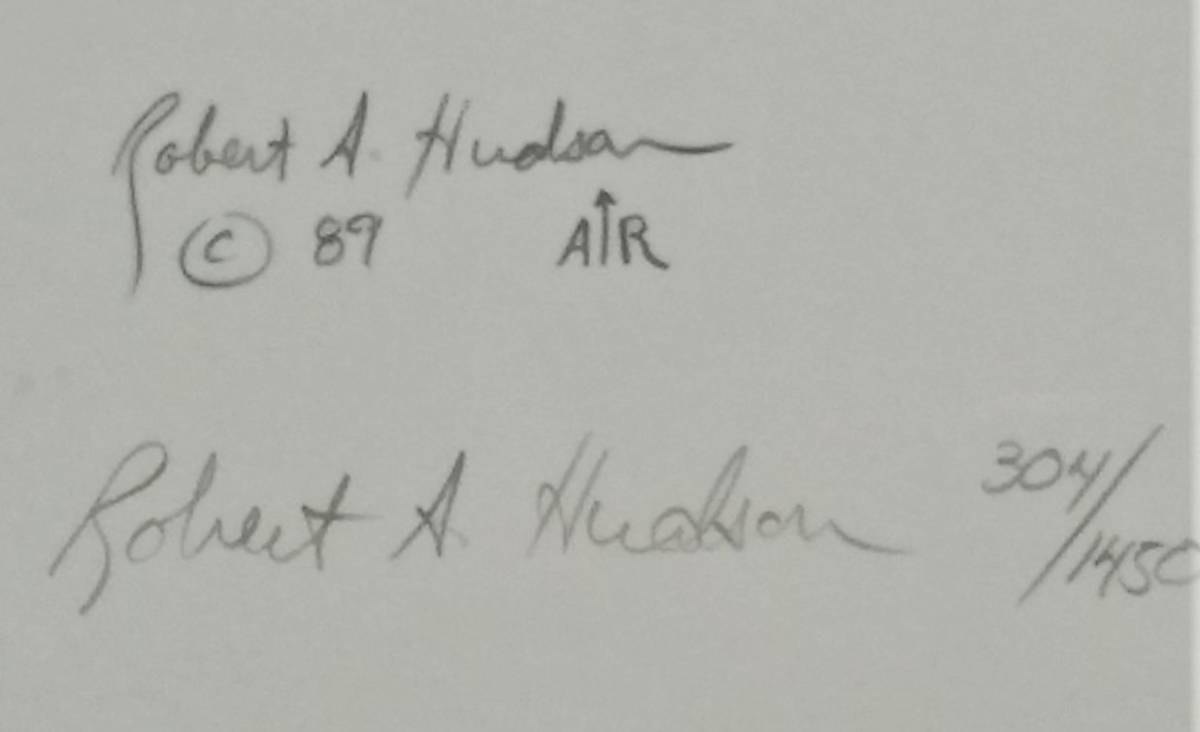 Robert A. Hudson
© 89 A↑R
Robert A. Hudson 304/1450